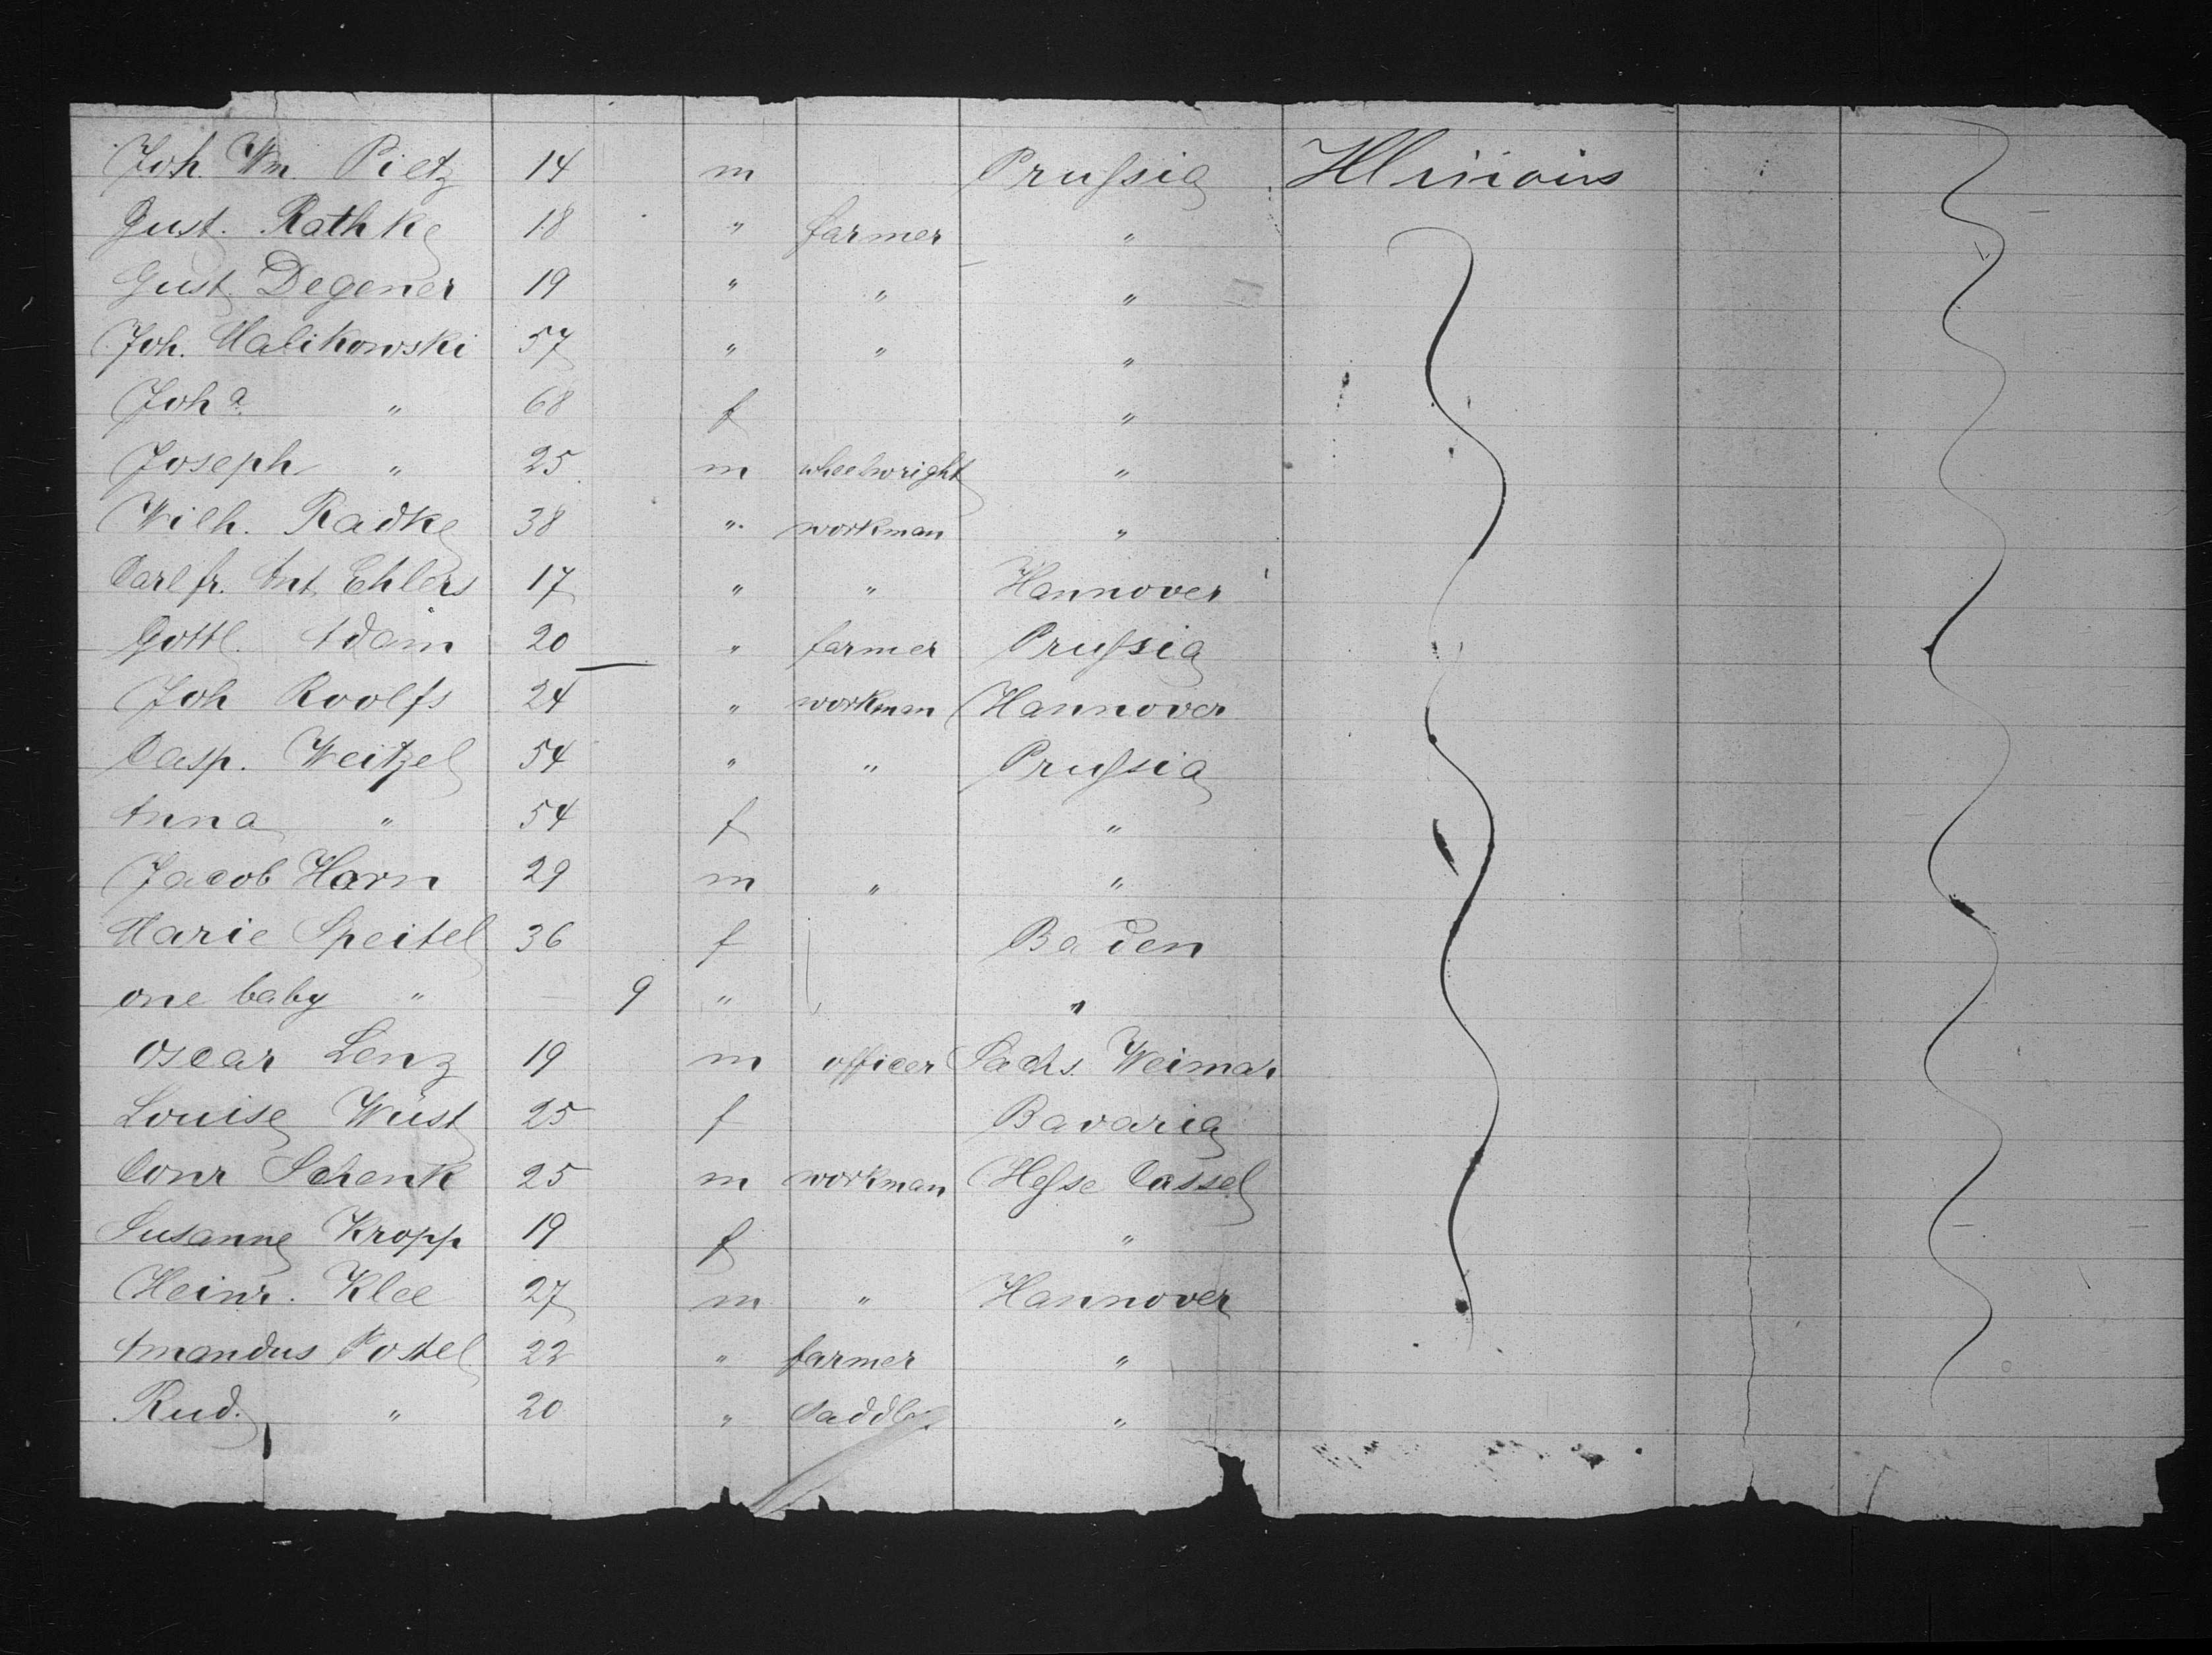 Joh. Wm. Pietz 14 m Prussia Illinois
Gust. Rathke 18 " farmer "
Gust. Degener 19 " " "
Joh. Malikowski 57 " " "
Joh a. " 68 f "
Joseph " 25 m wheelwright "
Wilh. Radke 38 " workman "
Carl fr. Ant. Ehlers 17 " " Hannover
Gottl. Adam 20 " farmer Prussia
Joh Roolfs 24 " workman Hannover
Casp. Weitzel 54 " " Prussia
Anna " 54 f "
Jacob Horn 29 m " "
Marie Speitel 36 f Baden
one baby " — 9 " "
Oscar Lenz 19 m officer Sachs. Weimar
Louise Wüst 25 f Bavaria
Conr Schenk 25 m workman Hesse Cassel
Susanne Kropp 19 f "
Heinr. Klee 27 m " Hannover
Amandus Postel 22 " farmer "
Rud. " 20 " "